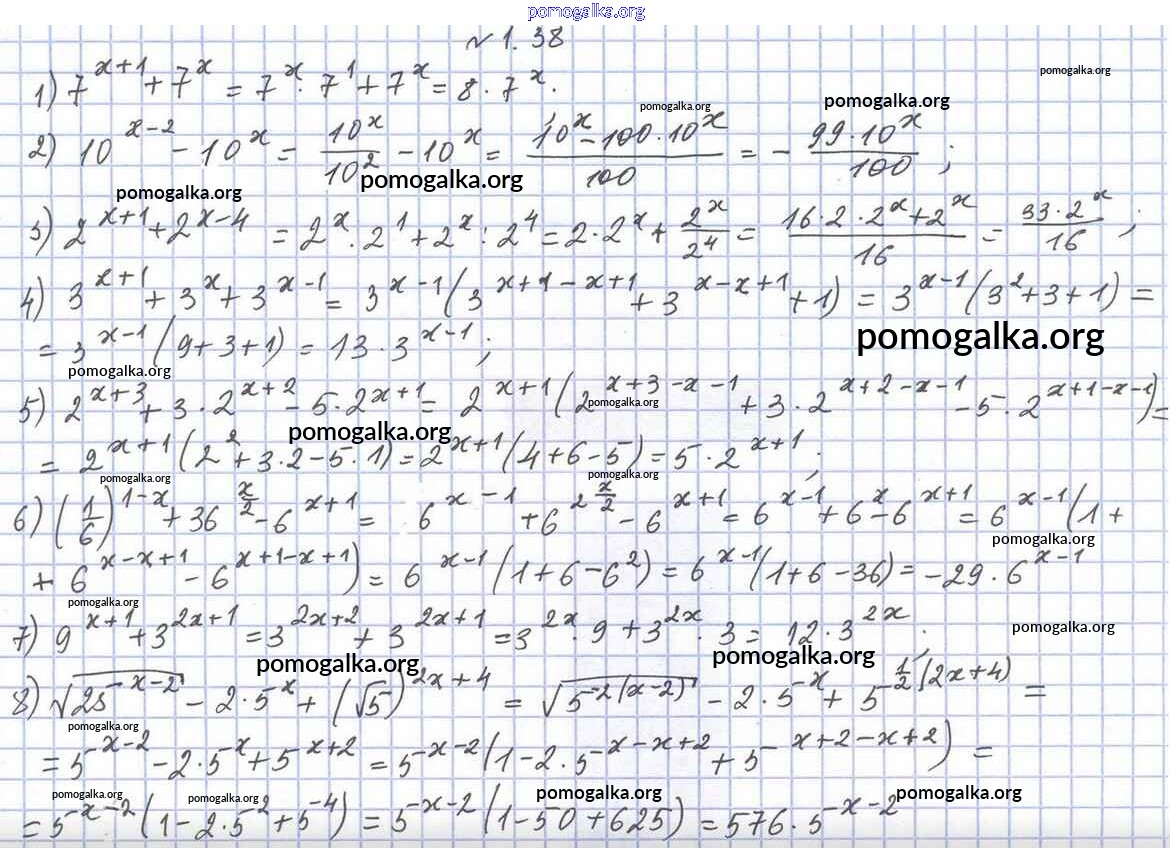 pomogalka.org
№1.38
1) 7^{x+1} + 7^x = 7^x · 7^1 + 7^x = 8 · 7^x.
pomogalka.org
pomogalka.org
pomogalka.org
2) 10^{x-2} - 10^x = \frac{10^x}{10^2} - 10^x = \frac{10^x - 100 · 10^x}{100} = -\frac{99 · 10^x}{100};
pomogalka.org
pomogalka.org
3) 2^{x+1} + 2^{x-4} = 2^x · 2^1 + 2^x : 2^4 = 2 · 2^x + \frac{2^x}{2^4} = \frac{16 · 2 · 2^x + 2^x}{16} = \frac{33 · 2^x}{16};
4) 3^{x+1} + 3^x + 3^{x-1} = 3^{x-1}(3^{x+1-x+1} + 3^{x-x+1} + 1) = 3^{x-1}(3^2 + 3 + 1) =
= 3^{x-1}(9 + 3 + 1) = 13 · 3^{x-1};
pomogalka.org
pomogalka.org
5) 2^{x+3} + 3 · 2^{x+2} - 5 · 2^{x+1} = 2^{x+1}(2^{x+3-x-1} + 3 · 2^{x+2-x-1} - 5 · 2^{x+1-x-1}) =
pomogalka.org
pomogalka.org
= 2^{x+1}(2^2 + 3 · 2 - 5 · 1) = 2^{x+1}(4 + 6 - 5) = 5 · 2^{x+1};
pomogalka.org
pomogalka.org
6) (\frac{1}{6})^{1-x} + 36^{\frac{x}{2}} - 6^{x+1} = 6^{x-1} + 6^{2\frac{x}{2}} - 6^{x+1} = 6^{x-1} + 6^x - 6^{x+1} = 6^{x-1}(1 +
pomogalka.org
+ 6^{x-x+1} - 6^{x+1-x+1}) = 6^{x-1}(1 + 6 - 6^2) = 6^{x-1}(1 + 6 - 36) = -29 · 6^{x-1}
pomogalka.org
7) 9^{x+1} + 3^{2x+1} = 3^{2x+2} + 3^{2x+1} = 3^{2x} · 9 + 3^{2x} · 3 = 12 · 3^{2x};
pomogalka.org
pomogalka.org
pomogalka.org
8) \sqrt{25^{-x-2}} - 2 · 5^{-x} + (\sqrt{5})^{2x+4} = \sqrt{5^{-2(x-2)}} - 2 · 5^{-x} + 5^{-\frac{1}{2}(2x+4)} =
= 5^{-x-2} - 2 · 5^{-x} + 5^{-x+2} = 5^{-x-2}(1 - 2 · 5^{-x-x+2} + 5^{-x+2-x+2}) =
pomogalka.org
pomogalka.org
pomogalka.org
pomogalka.org
= 5^{-x-2}(1 - 2 · 5^{-2} + 5^{-4}) = 5^{-x-2}(1 - 50 + 625) = 576 · 5^{-x-2}